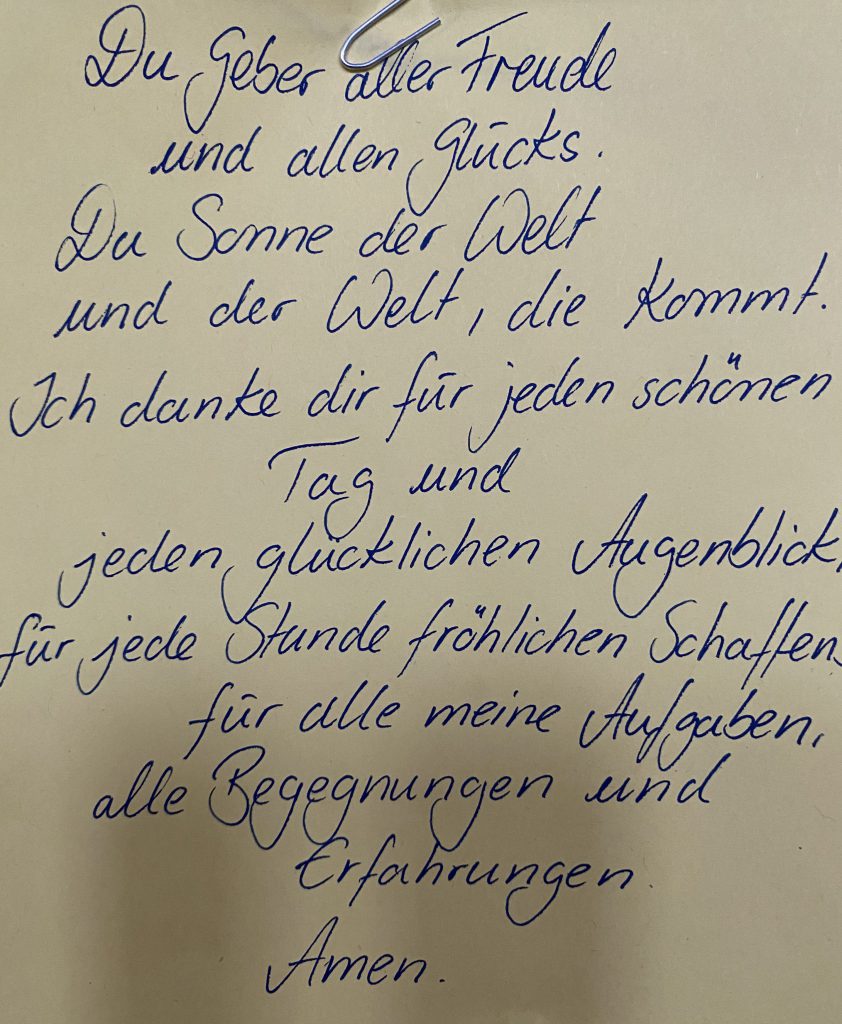 Du Geber aller Freude
und allen Glücks.
Du Sonne der Welt
und der Welt, die kommt.
Ich danke dir für jeden schönen
Tag und
jeden glücklichen Augenblick,
für jede Stunde fröhlichen Schaffens
für alle meine Aufgaben,
alle Begegnungen und
Erfahrungen.
Amen.